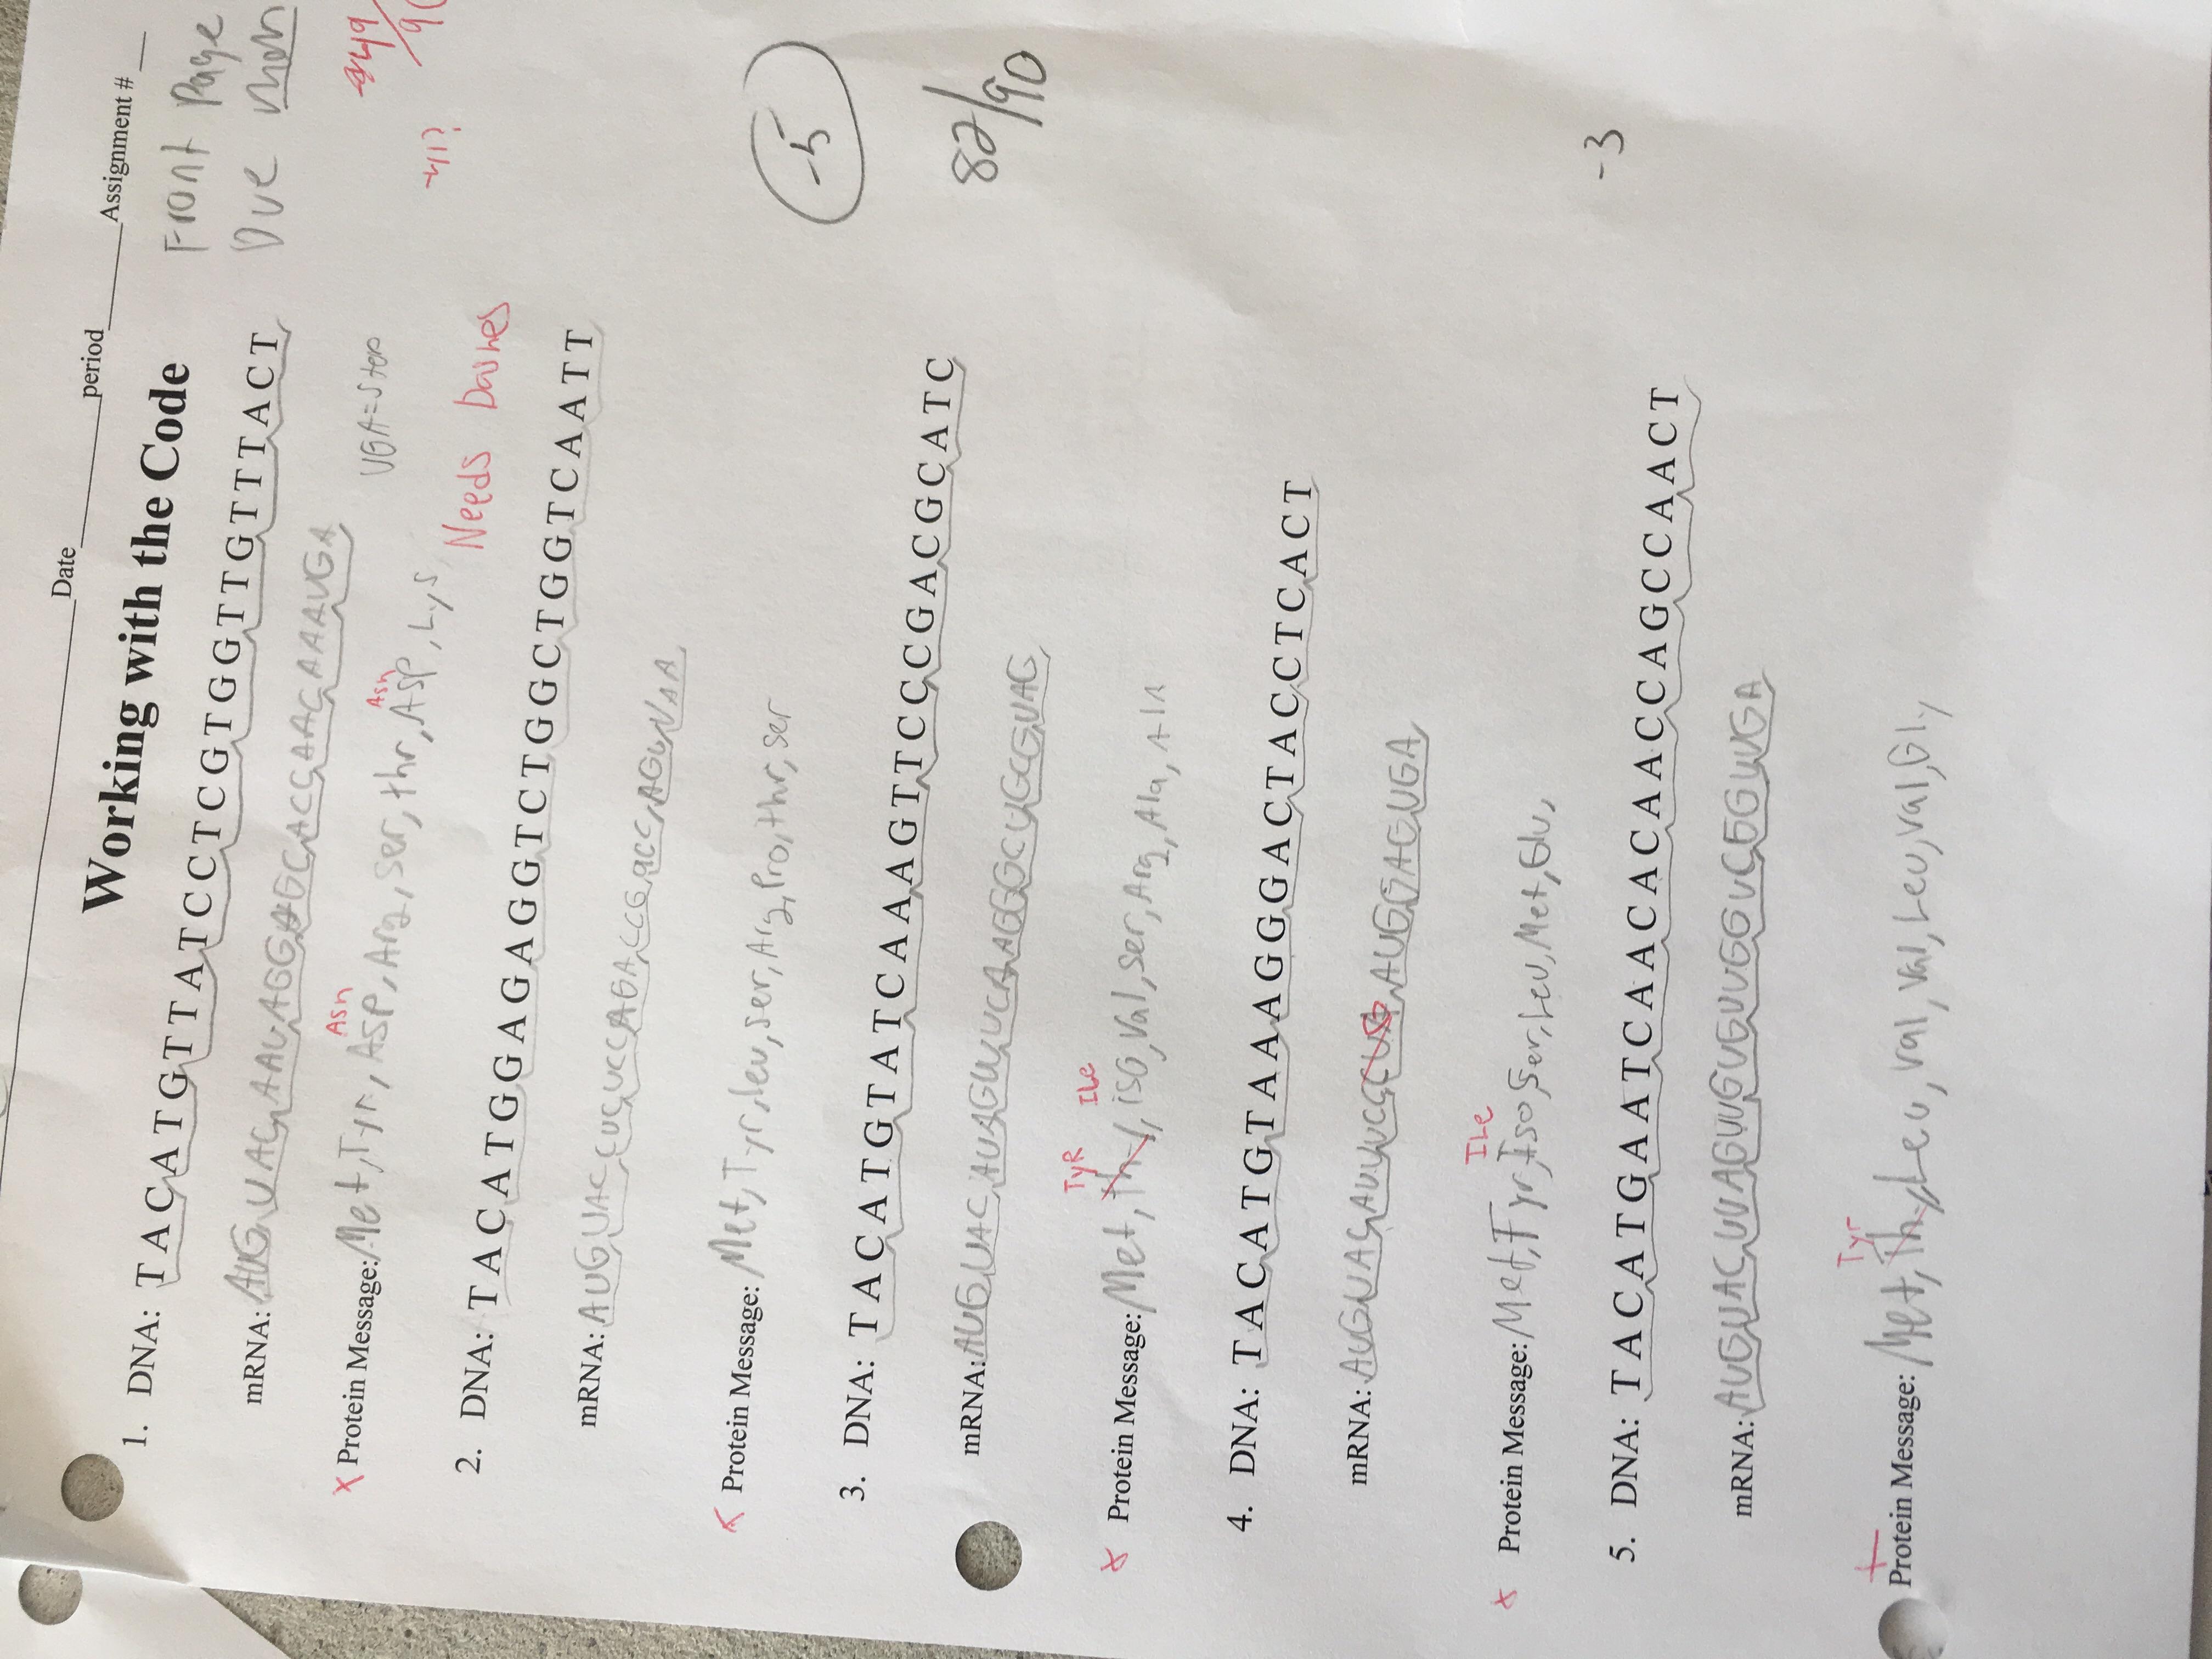 Date ______ period ______ Assignment # __
Front Page
Due Mon
Working with the Code
1. DNA: T A C A T G T T A T C C T C G T G G G T T G T T T A C T
-5
mRNA: AUG UAC AAU AGG AGC ACC AAC AAA UGA
UGA=Stop
Asn Asn
X Protein Message: Met, Tyr, ASP, Arg, ser, thr, ASP, Lys,
Needs Dashes
2. DNA: T A C A T G G A G A G G T C T G G C T G G T C A A T T
mRNA: AUG UAC CUC UCC AGA CCG ACC AGU UAA
82/90
X Protein Message: Met, Tyr, leu, ser, Arg, Pro, thr, ser
3. DNA: T A C A T G T A T C A A A G T T C C C G A C G C A T C
mRNA: AUG UAC AUA GUU UCA AGG GCU GCG UAG
TyR ILe
X Protein Message: Met, Thy, iso, val, ser, Arg, Ala, Ala
4. DNA: T A C A T G T A A A G G G A C T A C C T C A C T
mRNA: AUG UAC AUU UCC CUG AUG GAG UGA
ILe
X Protein Message: Met, Tyr, Iso, Ser, Leu, Met, Glu,
-3
5. DNA: T A C A T G A A T C A A C A C A A C C A G C C A A C T
mRNA: AUG UAC UUA GUU GUG UUG GUC GGU UGA
Tyr
Protein Message: Met, Thy, Leu, val, val, Leu, val, Gly